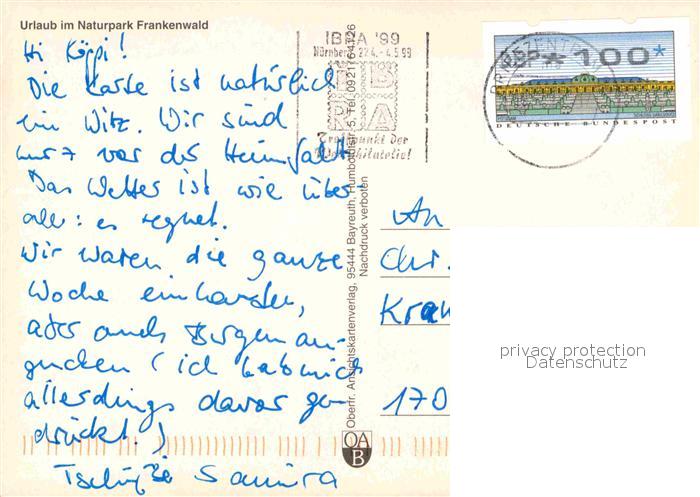 Urlaub im Naturpark Frankenwald
Hi Köppi!
Die Karte ist natürlich
ein Witz. Wir sind
kurz vor der Heimfahrt
Das Wetter ist wie über-
all: es regnet.
Wir waren die ganze
Woche einhorsten,
aber auch Burgen an-
gucken (ich hab mich
allerdings davor ge-
drückt.)
Tschüßi Samira
Oberfr. Ansichtskartenverlag, 95444 Bayreuth, Humboldtstr. 5, Tel. 0921/64126
Nachdruck verboten
OAB
IBRA '99
Nürnberg 27.4.-4.5.99
IBRA
Treffpunkt der
*100*
DEUTSCHE BUNDESPOST
An
Chr.
Kran
170
privacy protection
Datenschutz